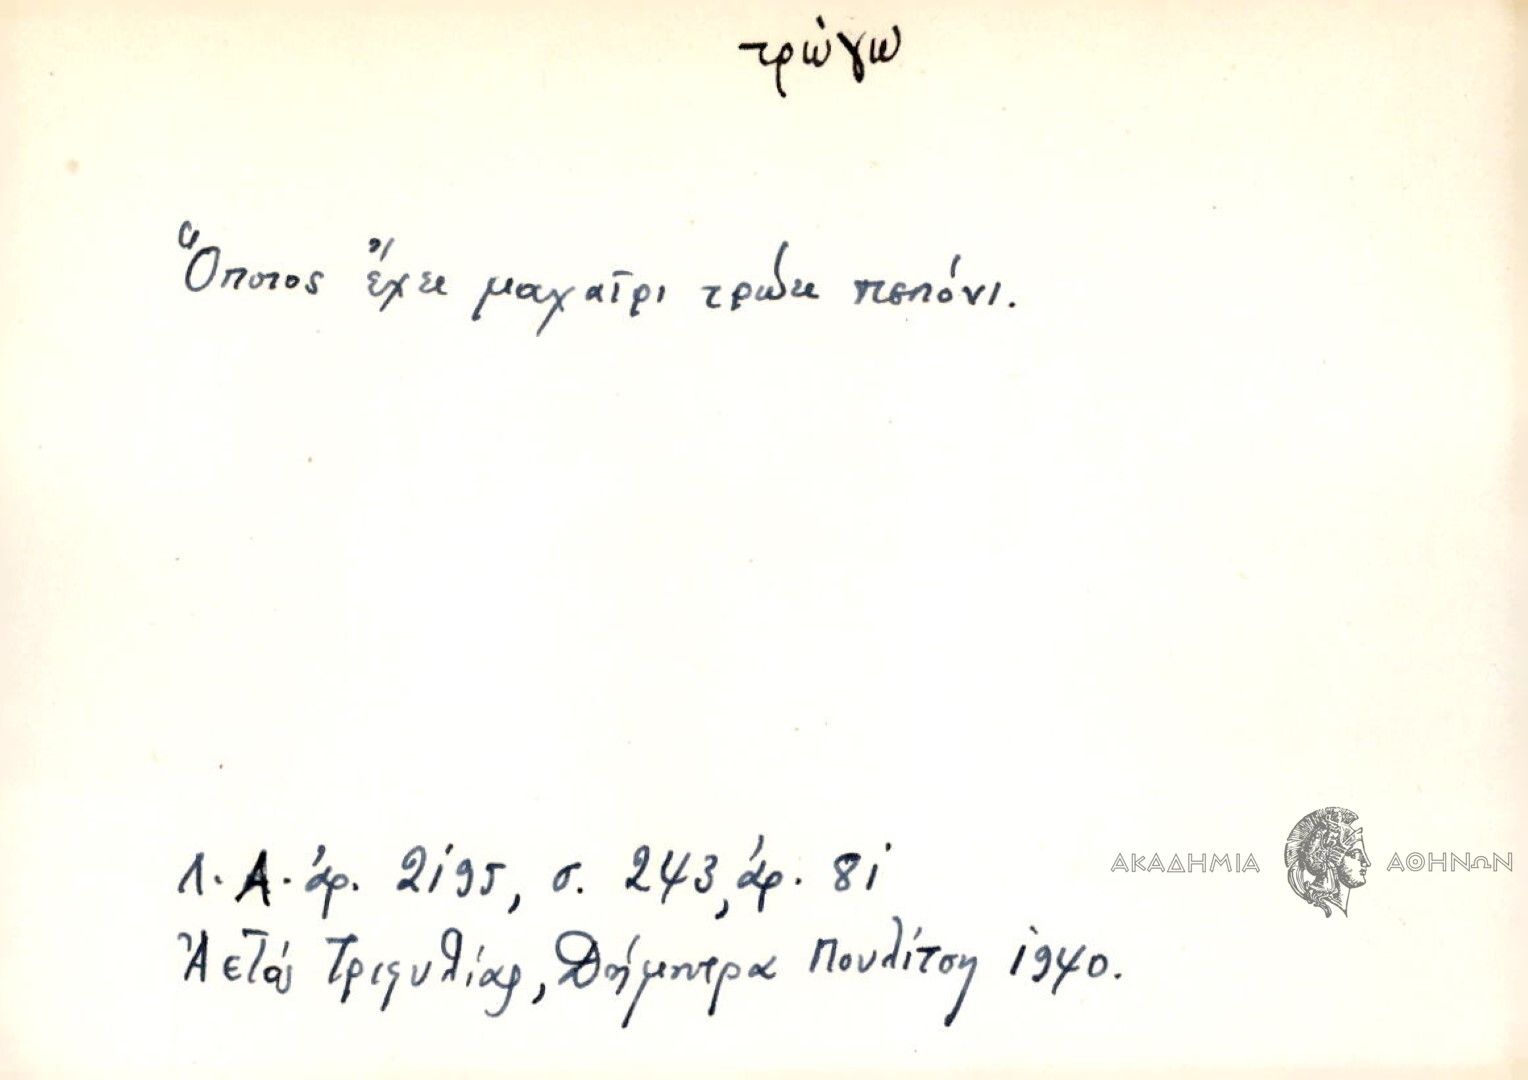 τρώγω
Ὅποιος ἔχει μαχαῖρι τρώει πεπόνι.
Λ. Α. ἀρ. 2195, σ. 243, ἀρ. 81
Ἀετός Τριφυλίας, Δήμητρα Πουλίτση 1940.
ΑΚΑΔΗΜΙΑ ΑΘΗΝΩΝ